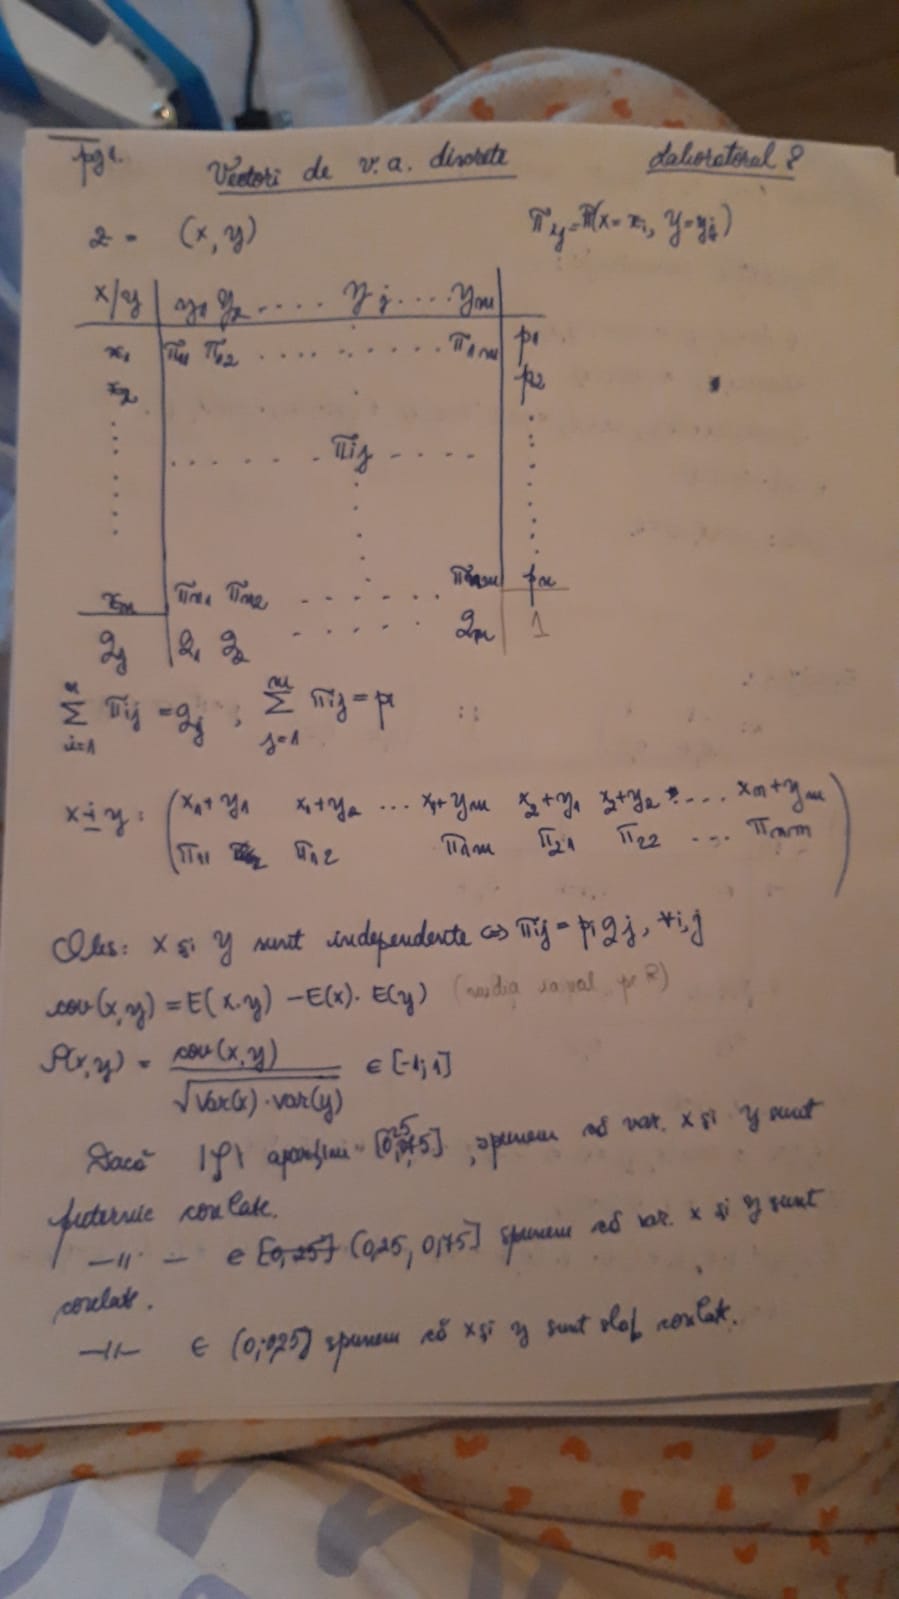 pg 1. Vectori de v.a. discrete Laboratorul 8
Z = (x, y) πij = P(x = xi, y = yj)
x/y y1 y2 .... yj .... ym
x1 π11 π12 ......... π1m p1
x2 p2
..... πij ----
xn πn1 πn2 ...... πnm pn
qj q1 q2 ...... qm 1
∑ i=1 n πij = qj ; ∑ j=1 m πij = pi
x + y : ( x1+y1 x1+y2 ... x1+ym x2+y1 x2+y2 .... xn+ym )
( π11 π12 π1m π21 π22 ... πnm )
Obs: x și y sunt independente ⇔ πij = pi qj, ∀i,j
cov(x,y) = E(x·y) - E(x)· E(y) (media val )
ρ(x,y) = cov(x,y) / √var(x)·var(y) ∈ [-1; 1]
Dacă |ρ| , spunem că var. x și y sunt
puternic corelate.
—11— ∈ [0,25] (0,25, 0,75] spunem că var. x și y sunt
corelate.
—11— ∈ (0; 0,25] spunem că x și y sunt slab corelate.